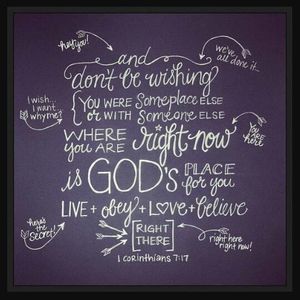 hey you!
we've all done it...
and
don't be wishing
I wish... I want... why me?
{you were someplace else
or with someone else
where you are right now
you are here
is GOD's place for you
LIVE + obey + LOVE + believe
here's the secret!
[RIGHT THERE]
right here right now!
1 Corinthians 7:17